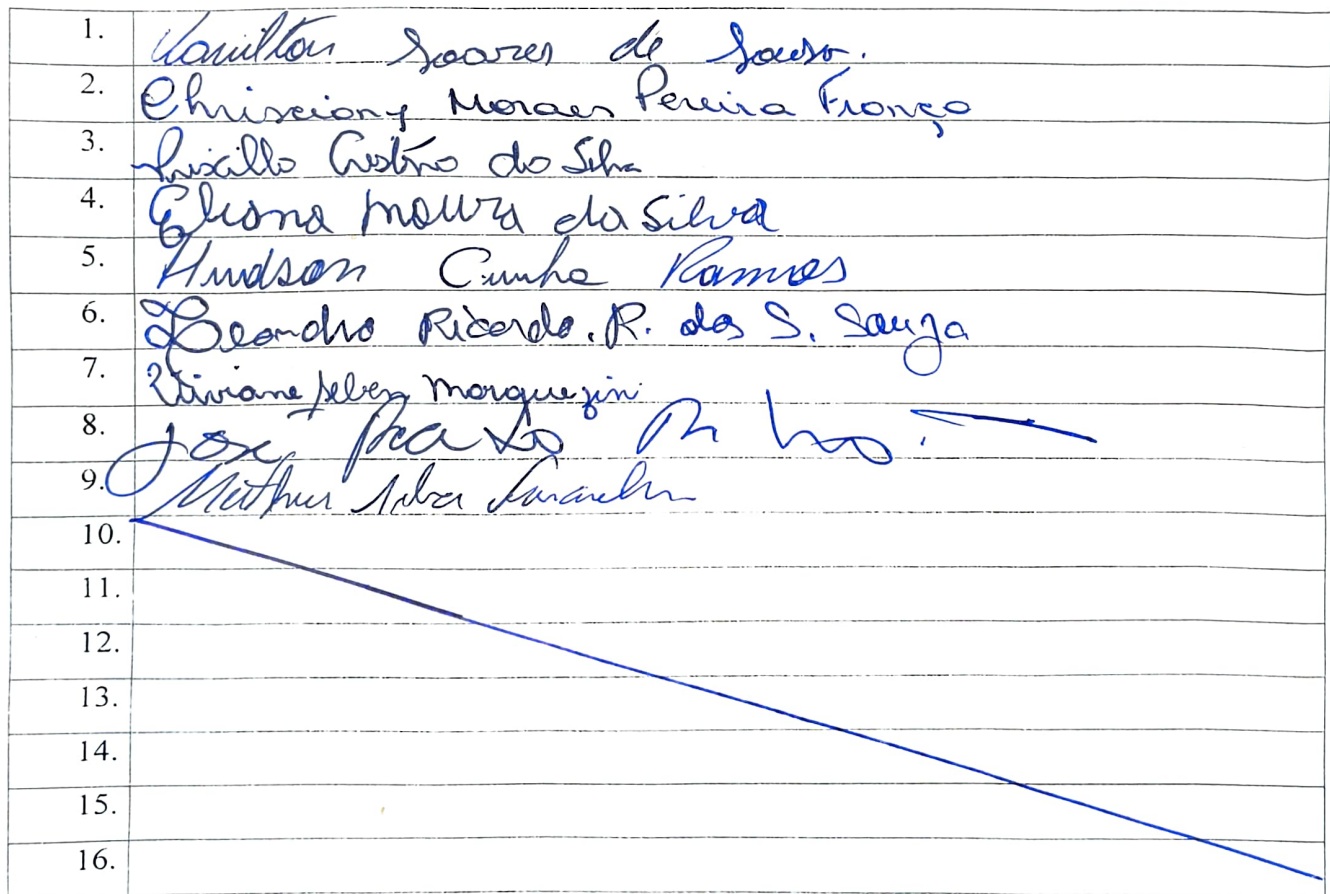 1. Vanilton Soares de Souza.
2. Chrisciany Moraes Pereira França
3. Priscilla Cristina da Silva
4. Eliana Moura da Silva
5. Hudson Cunha Ramos
6. Leandro Ricardo. R. dos S. Souza
7. Viviane Marquezini
8. José
9. Silva
10.
11.
12.
13.
14.
15.
16.